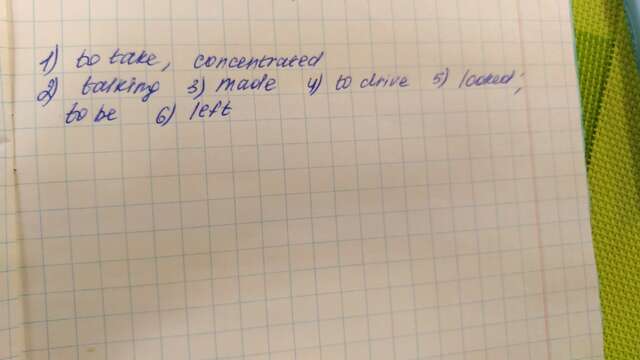 1) to take, concentrated
2) talking 3) made 4) to drive 5) looked;
to be 6) left